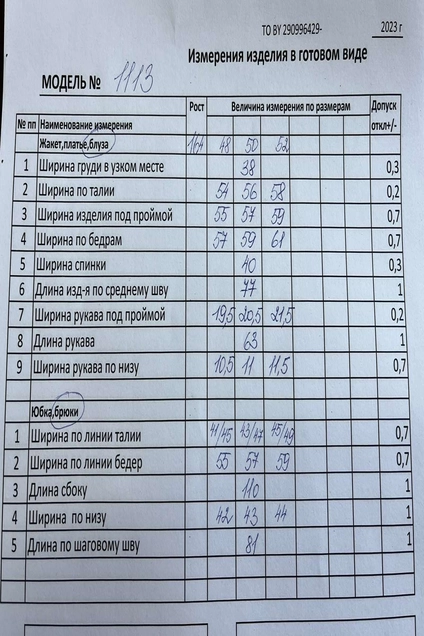 ТО BY 290996429- 2023 г
Измерения изделия в готовом виде
МОДЕЛЬ № 1113
№ пп Наименование измерения Рост Величина измерения по размерам Допуск откл+/-
Жакет,платье,блуза 164 48 50 52
1 Ширина груди в узком месте 38 0,3
2 Ширина по талии 54 56 58 0,2
3 Ширина изделия под проймой 55 57 59 0,7
4 Ширина по бедрам 57 59 61 0,7
5 Ширина спинки 40 0,3
6 Длина изд-я по среднему шву 77 1
7 Ширина рукава под проймой 19,5 20,5 21,5 0,2
8 Длина рукава 63 1
9 Ширина рукава по низу 10,5 11 11,5 0,7
Юбка,брюки
1 Ширина по линии талии 41/45 43/47 45/49 0,7
2 Ширина по линии бедер 55 57 59 0,7
3 Длина сбоку 110 1
4 Ширина по низу 42 43 44 1
5 Длина по шаговому шву 81 1